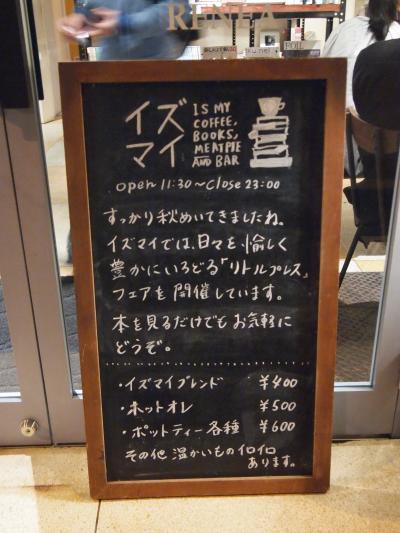 RENEA
イズマイ
IS MY
COFFEE,
BOOKS,
MEATPIE
AND BAR
open 11:30～close 23:00
すっかり秋めいてきましたね。
イズマイでは、日々を、愉しく
豊かにいろどる「リトルプレス」
フェアを開催しています。
本を見るだけでもお気軽に
どうぞ。
・イズマイブレンド ¥400
・ホットオレ ¥500
・ポットティー各種 ¥600
その他温かいもの イロイロ
あります。